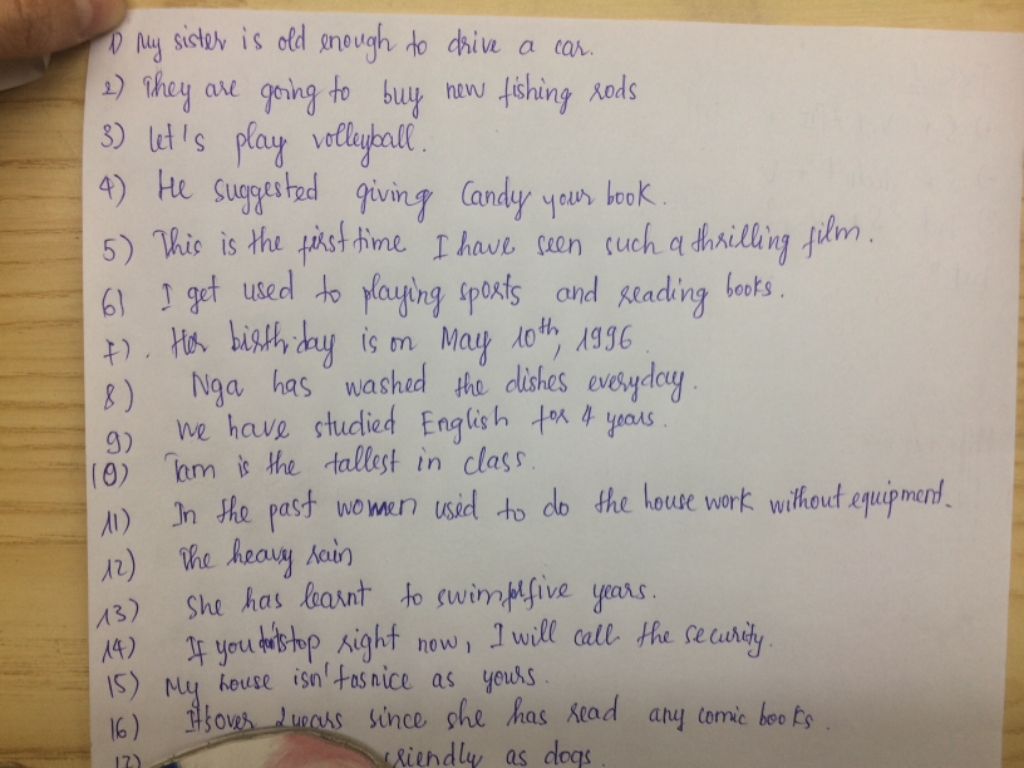 1) My sister is old enough to drive a car.
2) They are going to buy new fishing rods
3) Let's play volleyball.
4) He suggested giving Candy your book.
5) This is the first time I have seen such a thrilling film.
6) I get used to playing sports and reading books.
7). Her birthday is on May 10th, 1996
8) Nga has washed the dishes everyday.
9) We have studied English for 4 years.
10) Tam is the tallest in class.
11) In the past women used to do the house work without equipment.
12) The heavy rain
13) She has learnt to swim for five years.
14) If you stop right now, I will call the security.
15) My house isn't as nice as yours.
16) It's over 2 years since she has read any comic books.
17) friendly as dogs.